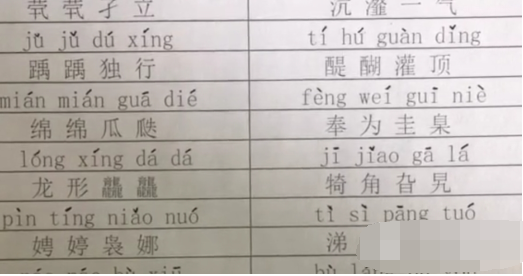 茕茕孑立 沆瀣一气
jǔ jǔ dú xíng tí hú guàn dǐng
踽踽独行 醍醐灌顶
mián mián guā dié fèng wéi guī niè
绵绵瓜瓞 奉为圭臬
lóng xíng dá dá jī jiǎo gā lá
龙形龘龘 犄角旮旯
pìn tíng niǎo nuó tì sì pāng tuó
娉婷袅娜 涕